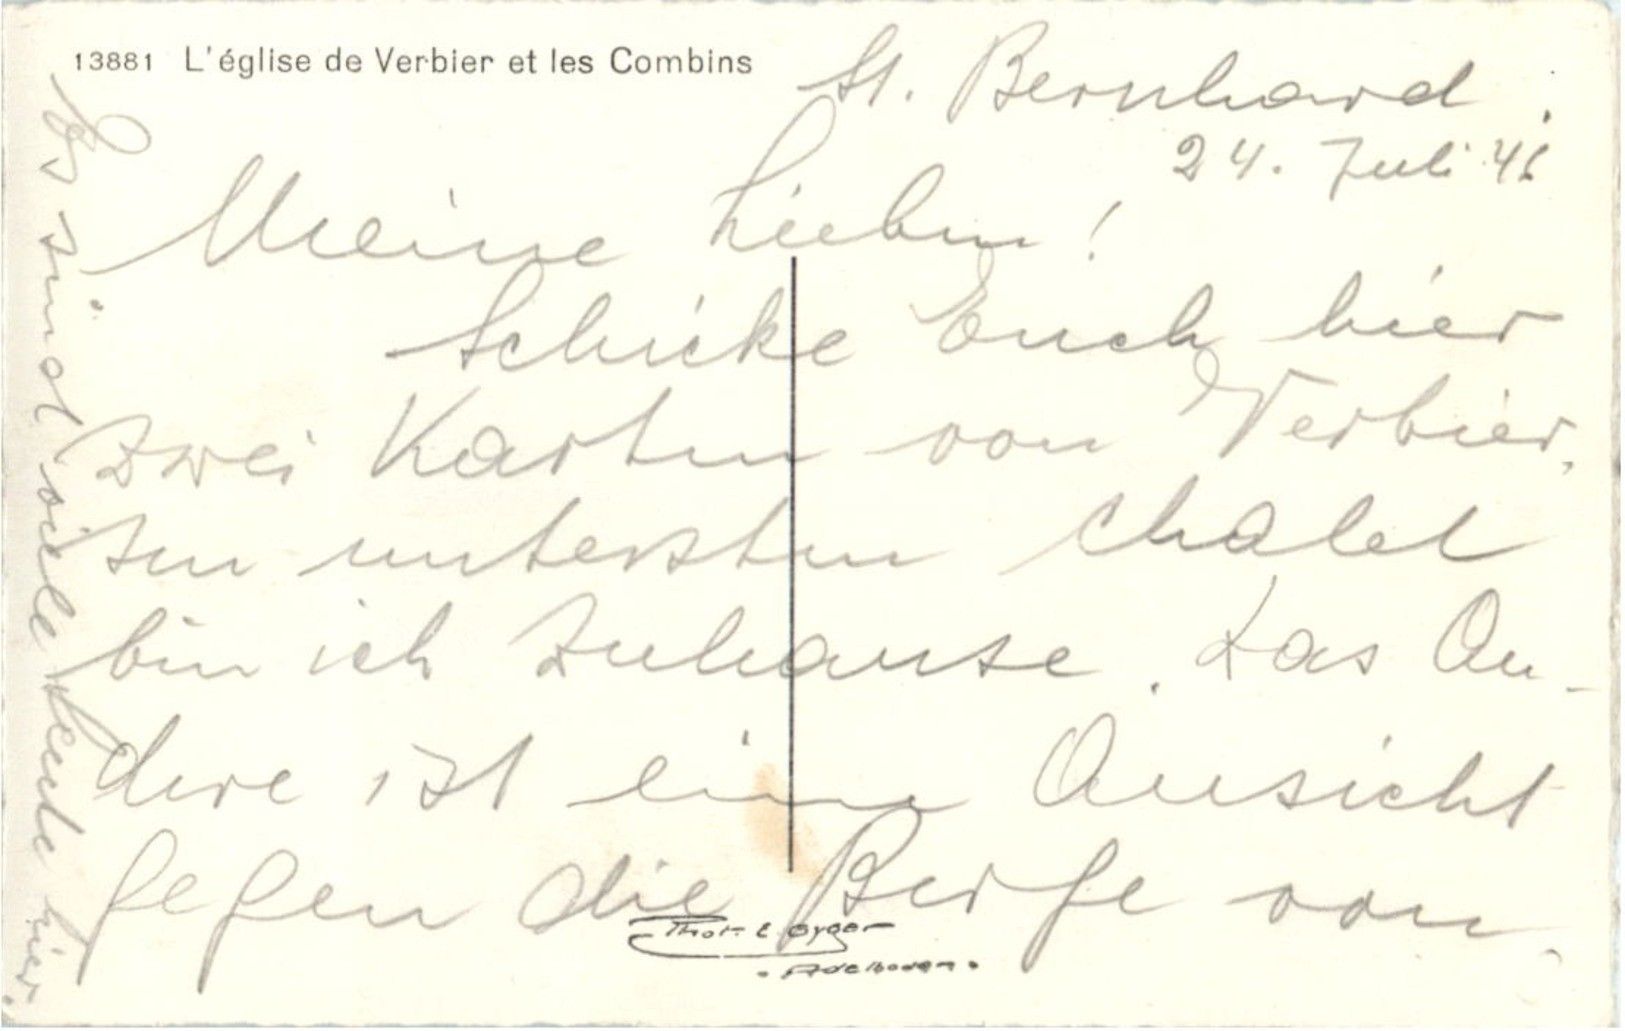 13881 L'église de Verbier et les Combins
St. Bernhard.
24. Juli 46
Meine Lieben!
Schicke Euch hier
zwei Karten von Verbier,
Im untersten Chalet
bin ich zuhause. Das An-
dere ist eine Ansicht
gegen die Berge von
Phot. E. Gyger
• Adelboden •
Es sind viele Leute hier.